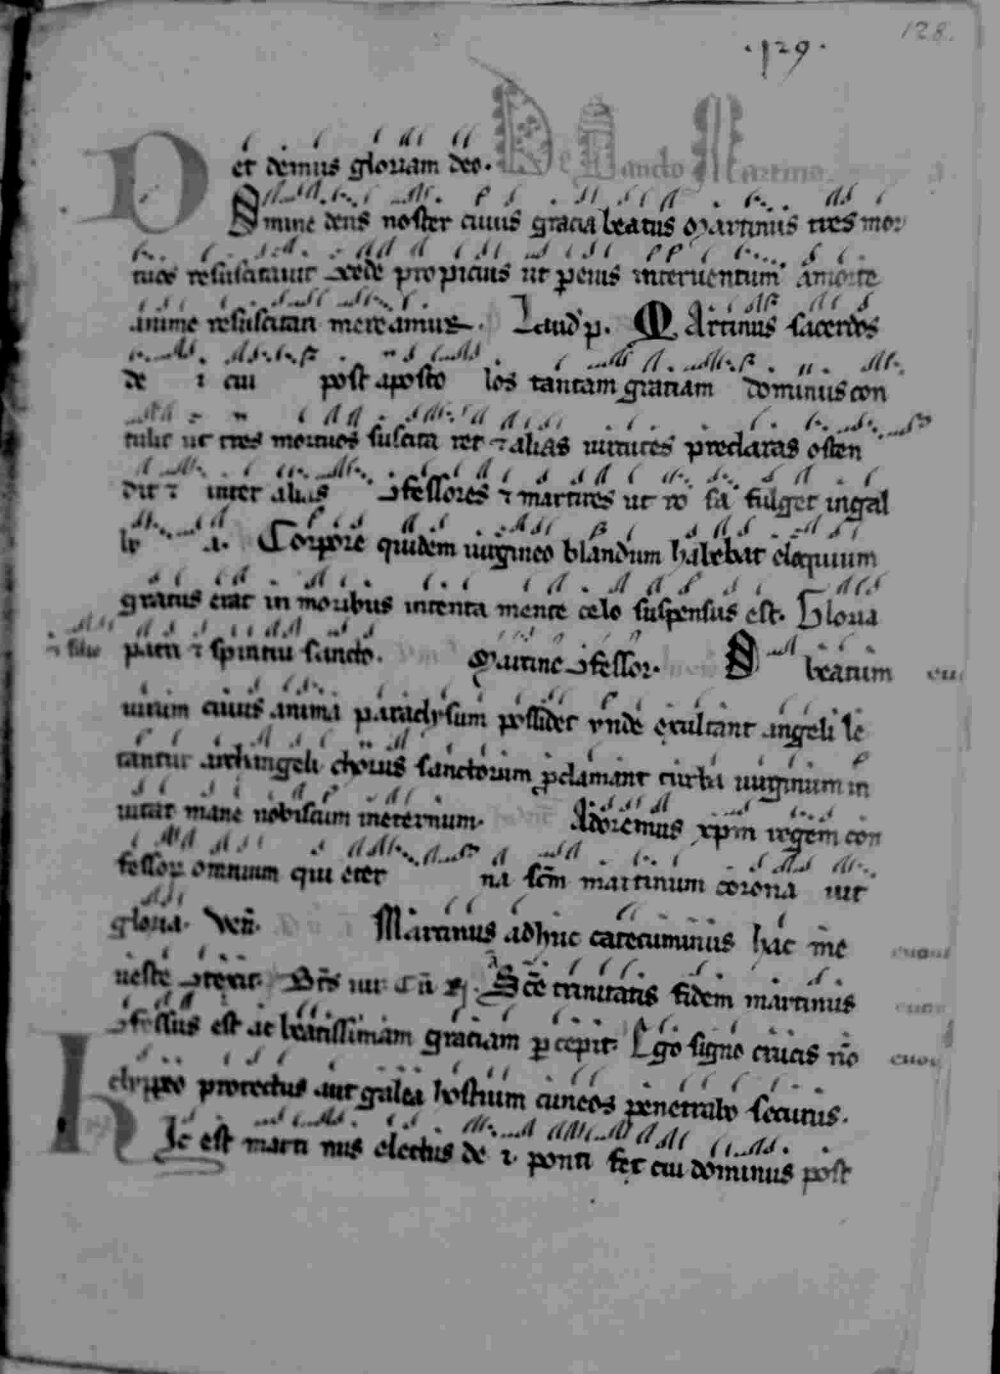 128.
·129·
et demus gloriam deo. De Sancto Martino.
Omine deus noster cuius gracia beatus Martinus tres mor
tuos resuscitauit ꝯcede propicius ut ꝑ eius interuentum a morte
anime resuscitari mereamur. Laud ꝑ. Martinus sacerdos
de i cui post aposto los tantam gratiam dominus con
tulit ut tres mortuos suscita ret ⁊ alias uirtutes preclaras osten
dit ⁊ inter alias ꝯfessores ⁊ martires ut ro sa fulget in gal
ly a. Corpore quidem uirgineo blandum habebat eloquium
gratus erat in moribus intenta mente celo suspensus est. Gloria
⁊ filio patri ⁊ spiritui sancto. Martine ꝯfessor. O beatum
uirum cuius anima paradysum possidet vnde exultant angeli le
tantur archangeli chorus sanctorum ꝓclamant turba uirginum in
uitat mane nobiscum in eternum. Adoremus xpm regem con
fessoꝝ omnium qui eter na scm martinum corona uit
gloria. Ven. Martinus adhuc catecuminus hac me
ueste ꝯtexit. Scē trinitatis fidem martinus
ꝯfessus est ac beatissimam graciam ꝑcepit. Ego signo crucis nō
clyppeo protectus aut galea hostium cuneos penetrabo securus.
Hic est marti nus electus de i ponti fex cui dominus post